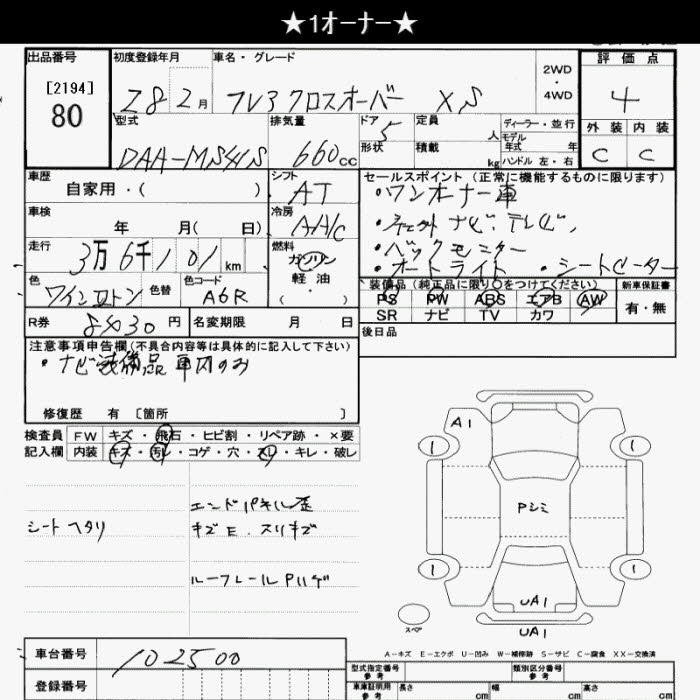 ★1オーナー★
出品番号 初度登録年月 車名・グレード 2WD・4WD 評価点
[2194]
80
Z8 2月 フレア クロスオーバー XS 4
型式 排気量 ドア 定員 人 ディーラー・並行 外装 内装
DAA-MS41S 660cc 5 形状 積載 kg モデル年式 年 ハンドル 左・右 C C
車歴 シフト セールスポイント (正常に機能するものに限ります)
自家用・( ) AT ・ワンオーナー車
車検 冷房 ・社外ナビ、テレビ、
年 月( 日) AA/C ・バックモニター
走行 燃料 ・オートライト ・シートヒーター
3万6千101km ガソリン
軽油
( )
色 色替 色コード 装備品(純正品に限り○をつけてください) 新車保証書
ワイン2トン A6R PS PW ABS エアB AW 有・無
SR ナビ TV カワ
R券 8430円 名変期限 月 日 後日品
注意事項申告欄(不具合内容等は具体的に記入して下さい)
・ナビ装備品 車内のみ
修復歴 有 〔箇所 〕
検査員 FW キズ・飛石・ヒビ割・リペア跡・×要
記入欄 内装 キズ・汚レ・コゲ・穴・スレ・キレ・破レ
エンドパネル歪
シートヘタリ キズE、スリキズ
ルーフレールPハゲ
A1
1 1
Pシミ
1 1
UA1
スペア
UA1
A-キズ E-エクボ U-凹み W-補修跡 S-サビ C-腐食 XX-交換済
車台番号 102500
型式指定番号 参考 類別区分番号 参考
登録番号
車車証明用 参考 長さ cm 幅 cm 高さ cm